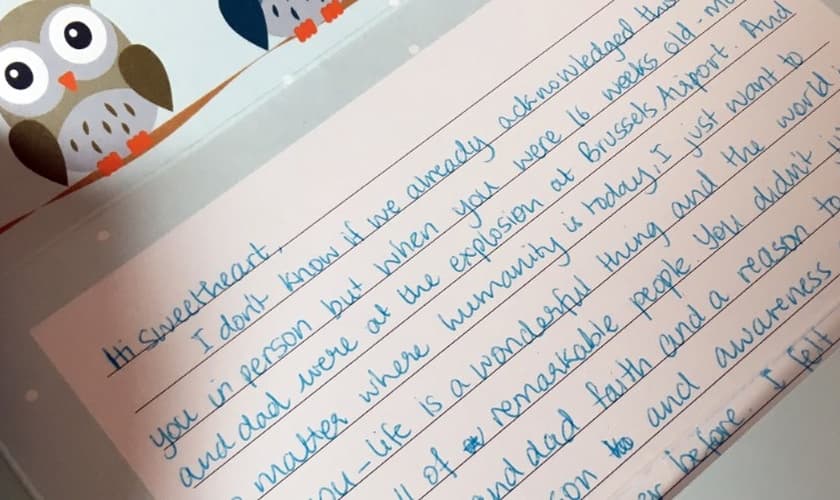 Hi sweetheart,
I don't know if i've already acknowledged this
you in person but when you were 16 weeks old -
and dad were at the explosion at Brussels Airport. And
matter where humanity is today, I just want to
-life is a wonderful thing and the world
of remarkable people. You didn't
and dad faith and a reason to
and awareness
before. I felt